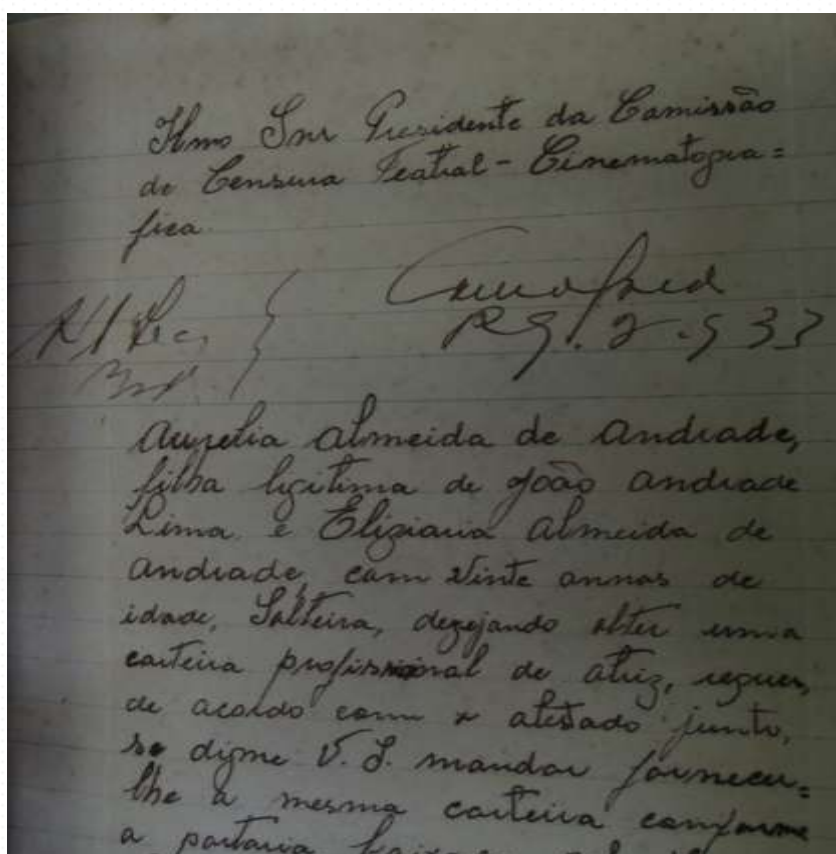 Ilmo Snr Presidente da Comissão
de Censura Teatral - Cinematogra=
fica.
Aurelia Almeida de Andrade,
filha legitima de João Andrade
Lima e Eliziaria Almeida de
Andrade, com vinte annos de
idade, Solteira, dezejando obter uma
carteira profissional de atriz, requer,
de acordo com o atestado junto,
se digne V. S. mandar fornecer=
lhe a mesma carteira conforme
a portaria